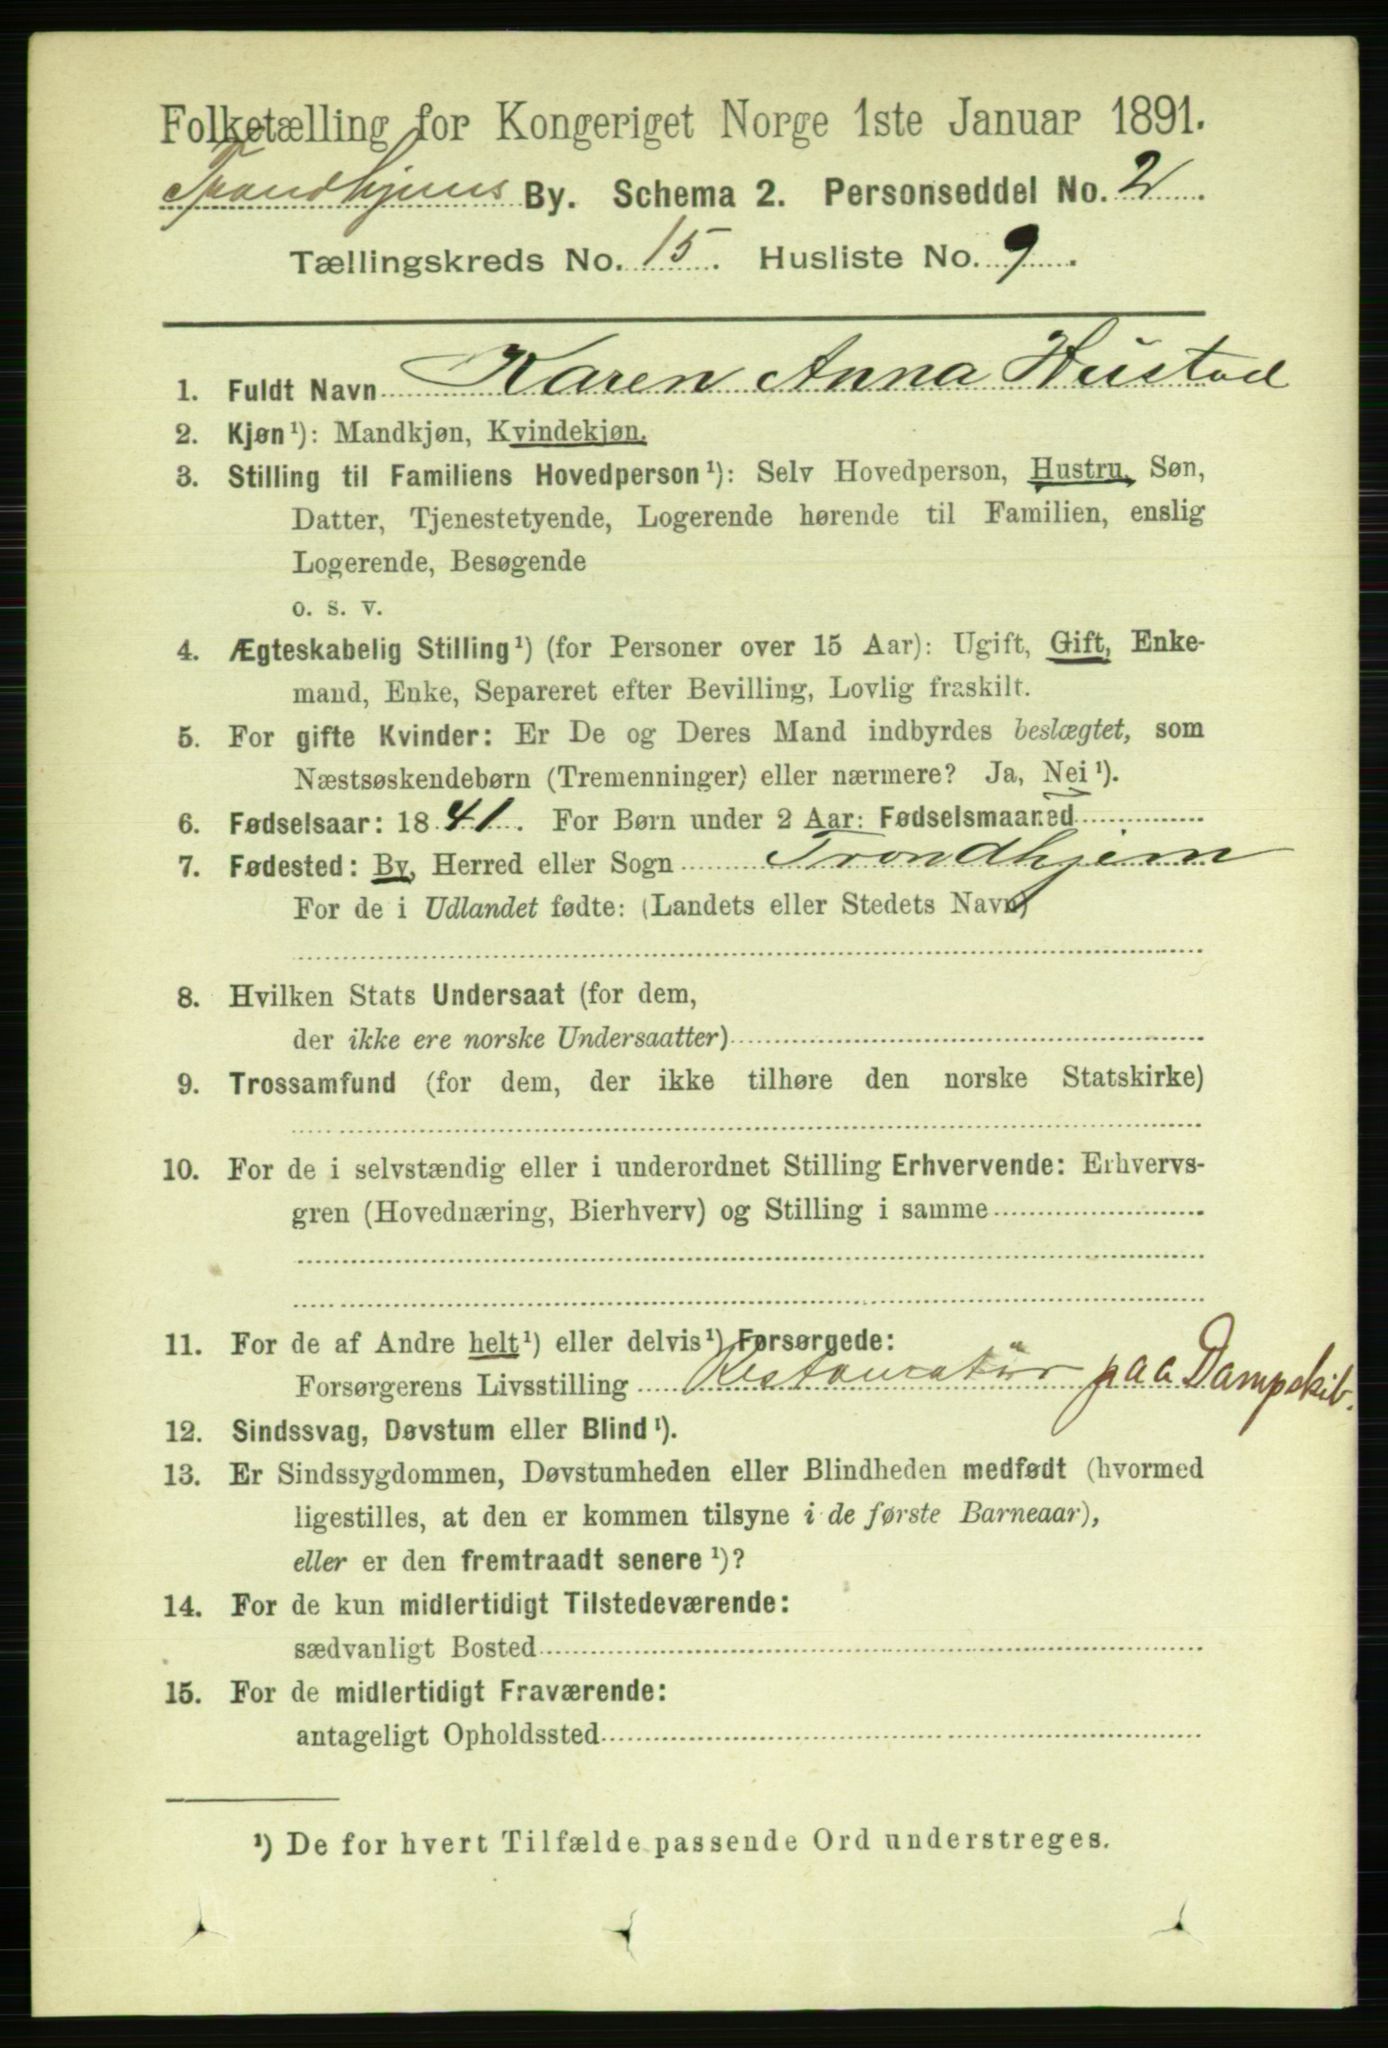 Folketælling for Kongeriget Norge 1ste Januar 1891.
Trondhjems By. Schema 2. Personseddel No. 2
Tællingskreds No. 15. Husliste No. 9.
1. Fuldt Navn Karen Anna Hustad
2. Kjøn¹): Mandkjøn, Kvindekjøn.
3. Stilling til Familiens Hovedperson¹): Selv Hovedperson, Hustru, Søn,
Datter, Tjenestetyende, Logerende hørende til Familien, enslig
Logerende, Besøgende
o. s. v.
4. Ægteskabelig Stilling¹) (for Personer over 15 Aar): Ugift, Gift, Enke-
mand, Enke, Separeret efter Bevilling, Lovlig fraskilt.
5. For gifte Kvinder: Er De og Deres Mand indbyrdes beslægtet, som
Næstsøskendebørn (Tremenninger) eller nærmere? Ja, Nei¹).
6. Fødselsaar: 1841. For Børn under 2 Aar: Fødselsmaaned
7. Fødested: By, Herred eller Sogn Trondhjem
For de i Udlandet fødte: (Landets eller Stedets Navn)
8. Hvilken Stats Undersaat (for dem,
der ikke ere norske Undersaatter)
9. Trossamfund (for dem, der ikke tilhøre den norske Statskirke)
10. For de i selvstændig eller i underordnet Stilling Erhvervende: Erhvervs-
gren (Hovednæring, Bierhverv) og Stilling i samme
11. For de af Andre helt¹) eller delvis¹) Forsørgede:
Forsørgerens Livsstilling Restauratür paa Dampskib.
12. Sindssvag, Døvstum eller Blind¹).
13. Er Sindssygdommen, Døvstumheden eller Blindheden medfødt (hvormed
ligestilles, at den er kommen tilsyne i de første Barneaar),
eller er den fremtraadt senere¹)?
14. For de kun midlertidigt Tilstedeværende:
sædvanligt Bosted
15. For de midlertidigt Fraværende:
antageligt Opholdssted
¹) De for hvert Tilfælde passende Ord understreges.